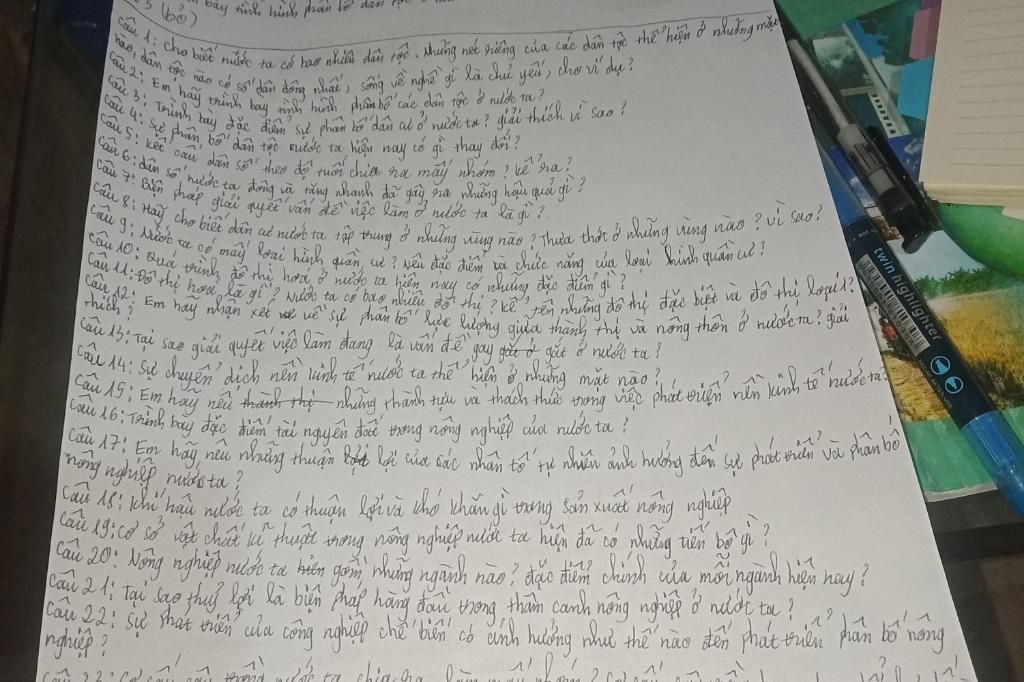 bày tình hình phân bố dân tộc
(bỏ)
Câu 1: Cho biết nước ta có bao nhiêu dân tộc. Những nét riêng của các dân tộc thể hiện ở những mặt
nào, dân tộc nào có số dân đông nhất, sống về nghề gì là chủ yếu, cho ví dụ?
Câu 2: Em hãy trình bày tình hình phân bố các dân tộc ở nước ta?
Câu 3: Trình bày đặc điểm sự phân bố dân cư ở nước ta? giải thích vì sao?
Câu 4: Sự phân bố dân tộc nước ta hiện nay có gì thay đổi?
Câu 5: Kết cấu dân số theo độ tuổi chia ra mấy nhóm? kể ra?
Câu 6: dân số nước ta đông và tăng nhanh đã gây ra những hậu quả gì?
Câu 7: Biện pháp giải quyết vấn đề việc làm ở nước ta là gì?
Câu 8: Hãy cho biết dân cư nước ta tập trung ở những vùng nào? Thưa thớt ở những vùng nào? vì sao?
Câu 9: Nước ta có mấy loại hình quần cư? Nêu đặc điểm và chức năng của loại hình quần cư?
Câu 10: Quá trình đô thị hoá ở nước ta hiện nay có những đặc điểm gì?
Câu 11: Đô thị hoá là gì? Nước ta có bao nhiêu đô thị? kể tên những đô thị đặc biệt và đô thị loại 1?
Câu 12: Em hãy nhận xét về sự phân bố lực lượng giữa thành thị và nông thôn ở nước ta? giải
thích?
Câu 13: Tại sao giải quyết việc làm đang là vấn đề gay gắt ở nước ta?
Câu 14: Sự chuyển dịch nền kinh tế nước ta thể hiện ở những mặt nào?
Câu 15: Em hãy nêu thành thị những thành tựu và thách thức trong việc phát triển nền kinh tế nước ta?
Câu 16: Trình bày đặc điểm tài nguyên đất trong nông nghiệp của nước ta?
Câu 17: Em hãy nêu những thuận lợi của các nhân tố tự nhiên ảnh hưởng đến sự phát triển và phân bố
nông nghiệp nước ta?
Câu 18: Khí hậu nước ta có thuận lợi và khó khăn gì trong sản xuất nông nghiệp
Câu 19: Cơ sở vật chất kĩ thuật trong nông nghiệp nước ta hiện đã có những tiến bộ gì?
Câu 20: Nông nghiệp nước ta gồm những ngành nào? đặc điểm chính của mỗi ngành hiện nay?
Câu 21: Tại sao thuỷ lợi là biện pháp hàng đầu trong thâm canh nông nghiệp ở nước ta?
Câu 22: Sự phát triển của công nghiệp chế biến có ảnh hưởng như thế nào đến phát triển phân bố nông
nghiệp?
twin highlighter